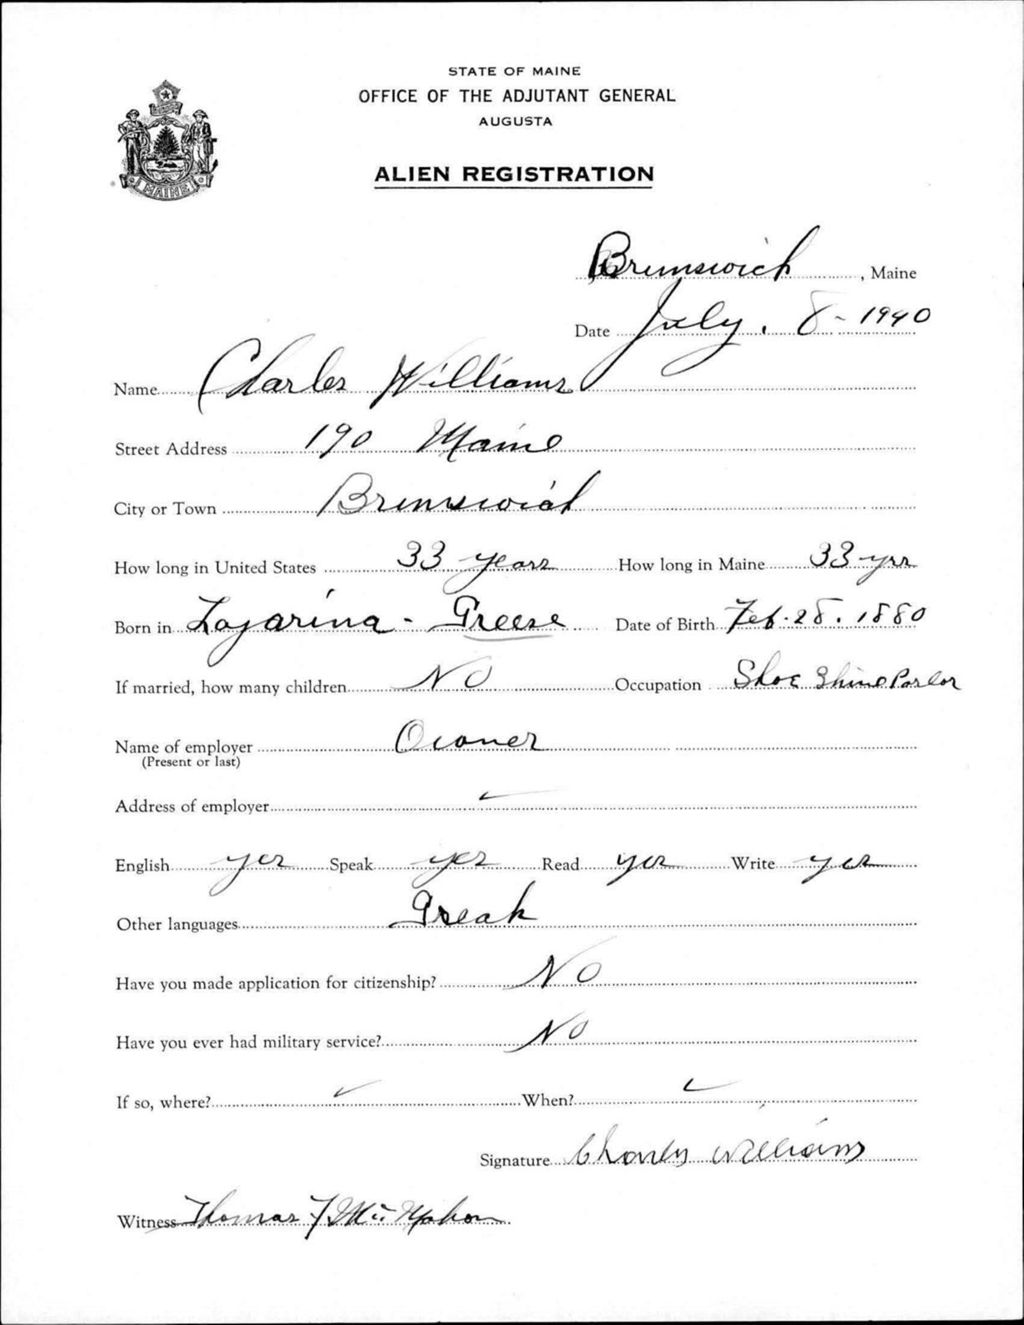 STATE OF MAINE
OFFICE OF THE ADJUTANT GENERAL
AUGUSTA
ALIEN REGISTRATION
MAINE
Brunswick, Maine
Date July. 8 - 1940
Name Charles Williams
Street Address 190 Maine
City or Town Brunswick
How long in United States 33 years How long in Maine 33 yrs
Born in - Greese Date of Birth Feb. 28. 1880
If married, how many children No Occupation Shoe Shine Parlor
Name of employer Owner
(Present or last)
Address of employer ✓
English yes Speak yes Read yes Write yes
Other languages Greak
Have you made application for citizenship? No
Have you ever had military service? No
If so, where? ✓ When? ✓
Signature Charles Williams
Witness Thomas F McMahon